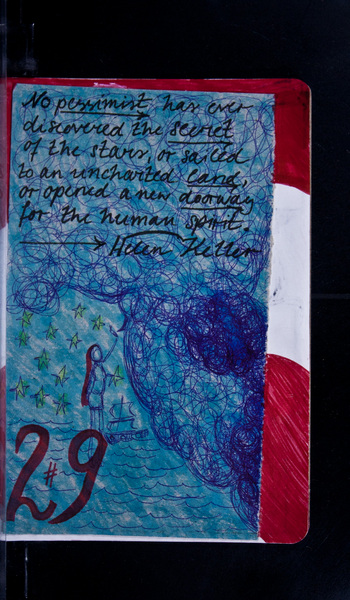 No pessimist, has ever
discovered the secret
of the stars, or sailed
to an uncharted land,
or opened a new doorway
for the human spirit.
Helen Keller
#
29